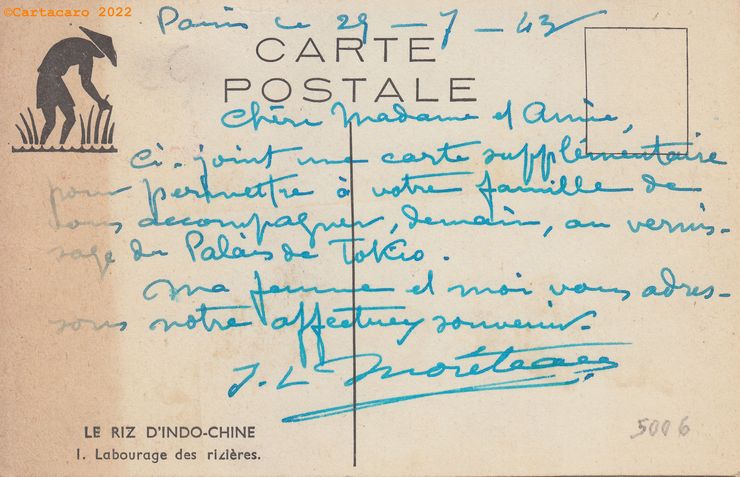 ©Cartacaro 2022
Paris le 29 - 7 - 43
CARTE
POSTALE
Chère Madame et Amie,
Ci-joint une carte supplémentaire
pour permettre à votre famille de
vous accompagner, demain, au vernis-
sage du Palais de Tokio.
Ma femme et moi vous adres-
sons notre affectueux souvenir.
J. L
LE RIZ D'INDO-CHINE
1. Labourage des rizières.
5006